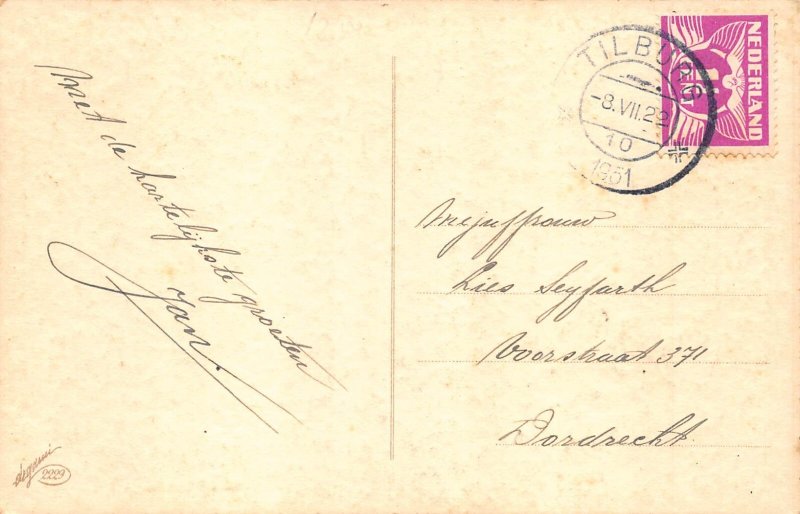 Met de hartelijkste groeten
Jan.
TILBURG
-8.VII.22
10
1931
NEDERLAND
CENT
Mejuffrouw
Lies Seyfarth
Voorstraat 371
Dordrecht
2229